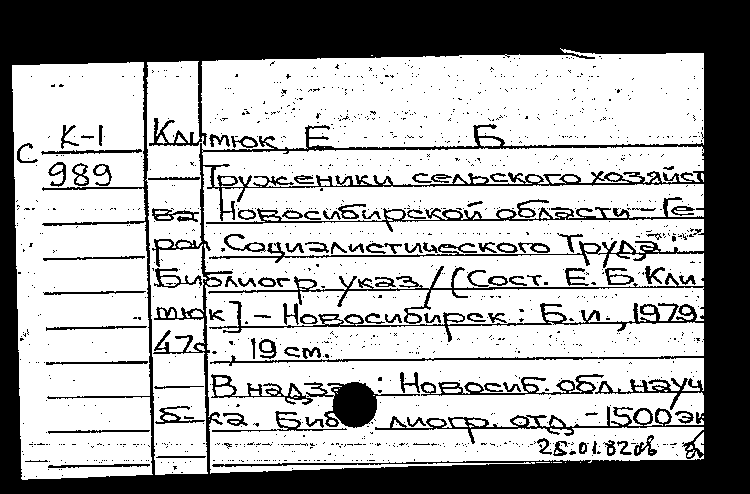 К-1 Климюк, Е Б
С 989 Труженики сельского хозяйст
ва Новосибирской области – Ге-
рои Социалистического Труда:
Библиогр. указ. / [Сост. Е. Б. Кли-
мюк]. – Новосибирск: Б.и., 1979.
47с.; 19 см.
В надзаг: Новосиб. обл. науч
б-ка. Библиогр. отд. – 1500 эк
28.01.82